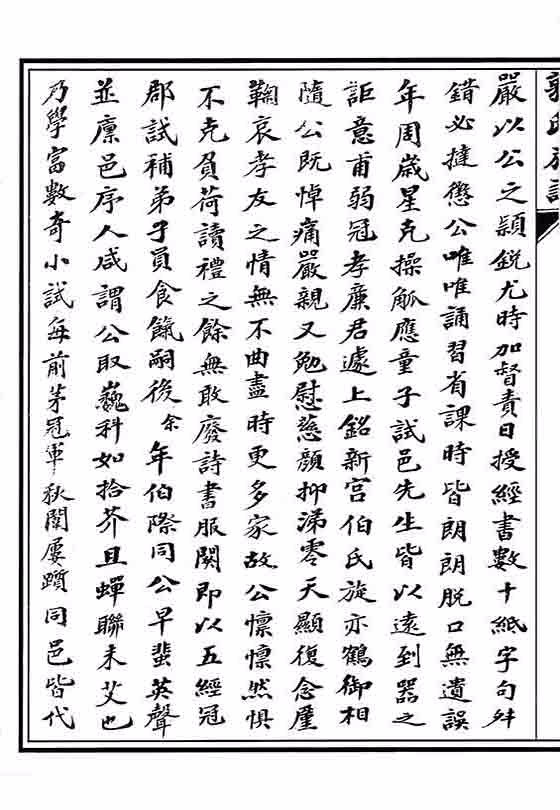 嚴以公之頴銳尤時加督責日授經書數十紙字句舛
錯必撻懲公唯唯誦習省課時皆朗朗脱口無遺誤
年周歲星克操觚應童子試邑先生皆以遠到器之
詎意甫弱冠孝廉君遽上銘新宫伯氏旋亦鶴御相
隨公既悼痛嚴親又勉慰慈顔抑涕零天顯復念厪
鞠哀孝友之情無不曲盡時更多家故公懔懔然惧
不克負荷讀禮之餘無敢廢詩書服闋即以五經冠
郡試補弟子員食餼嗣後余年伯際同公早蜚英聲
並廪邑序人咸謂公取巍科如拾芥且蟬聯未艾也
乃學富數奇小試每前茅冠軍秋闈屢躓同邑皆代